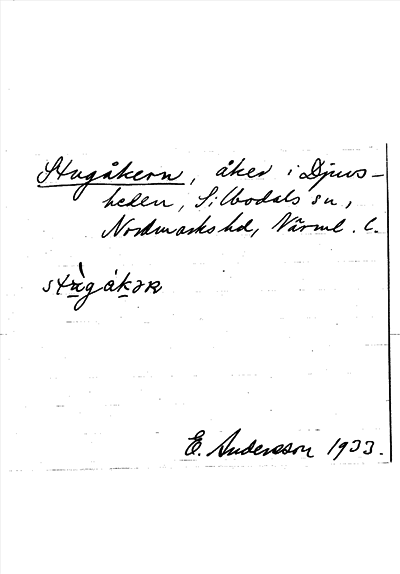 Stugåkern, åker i Djuvs-
heden, Silbodals sn,
Nordmarks hd, Värml. l.
stùgåkəʀ
E. Andersson 1933.